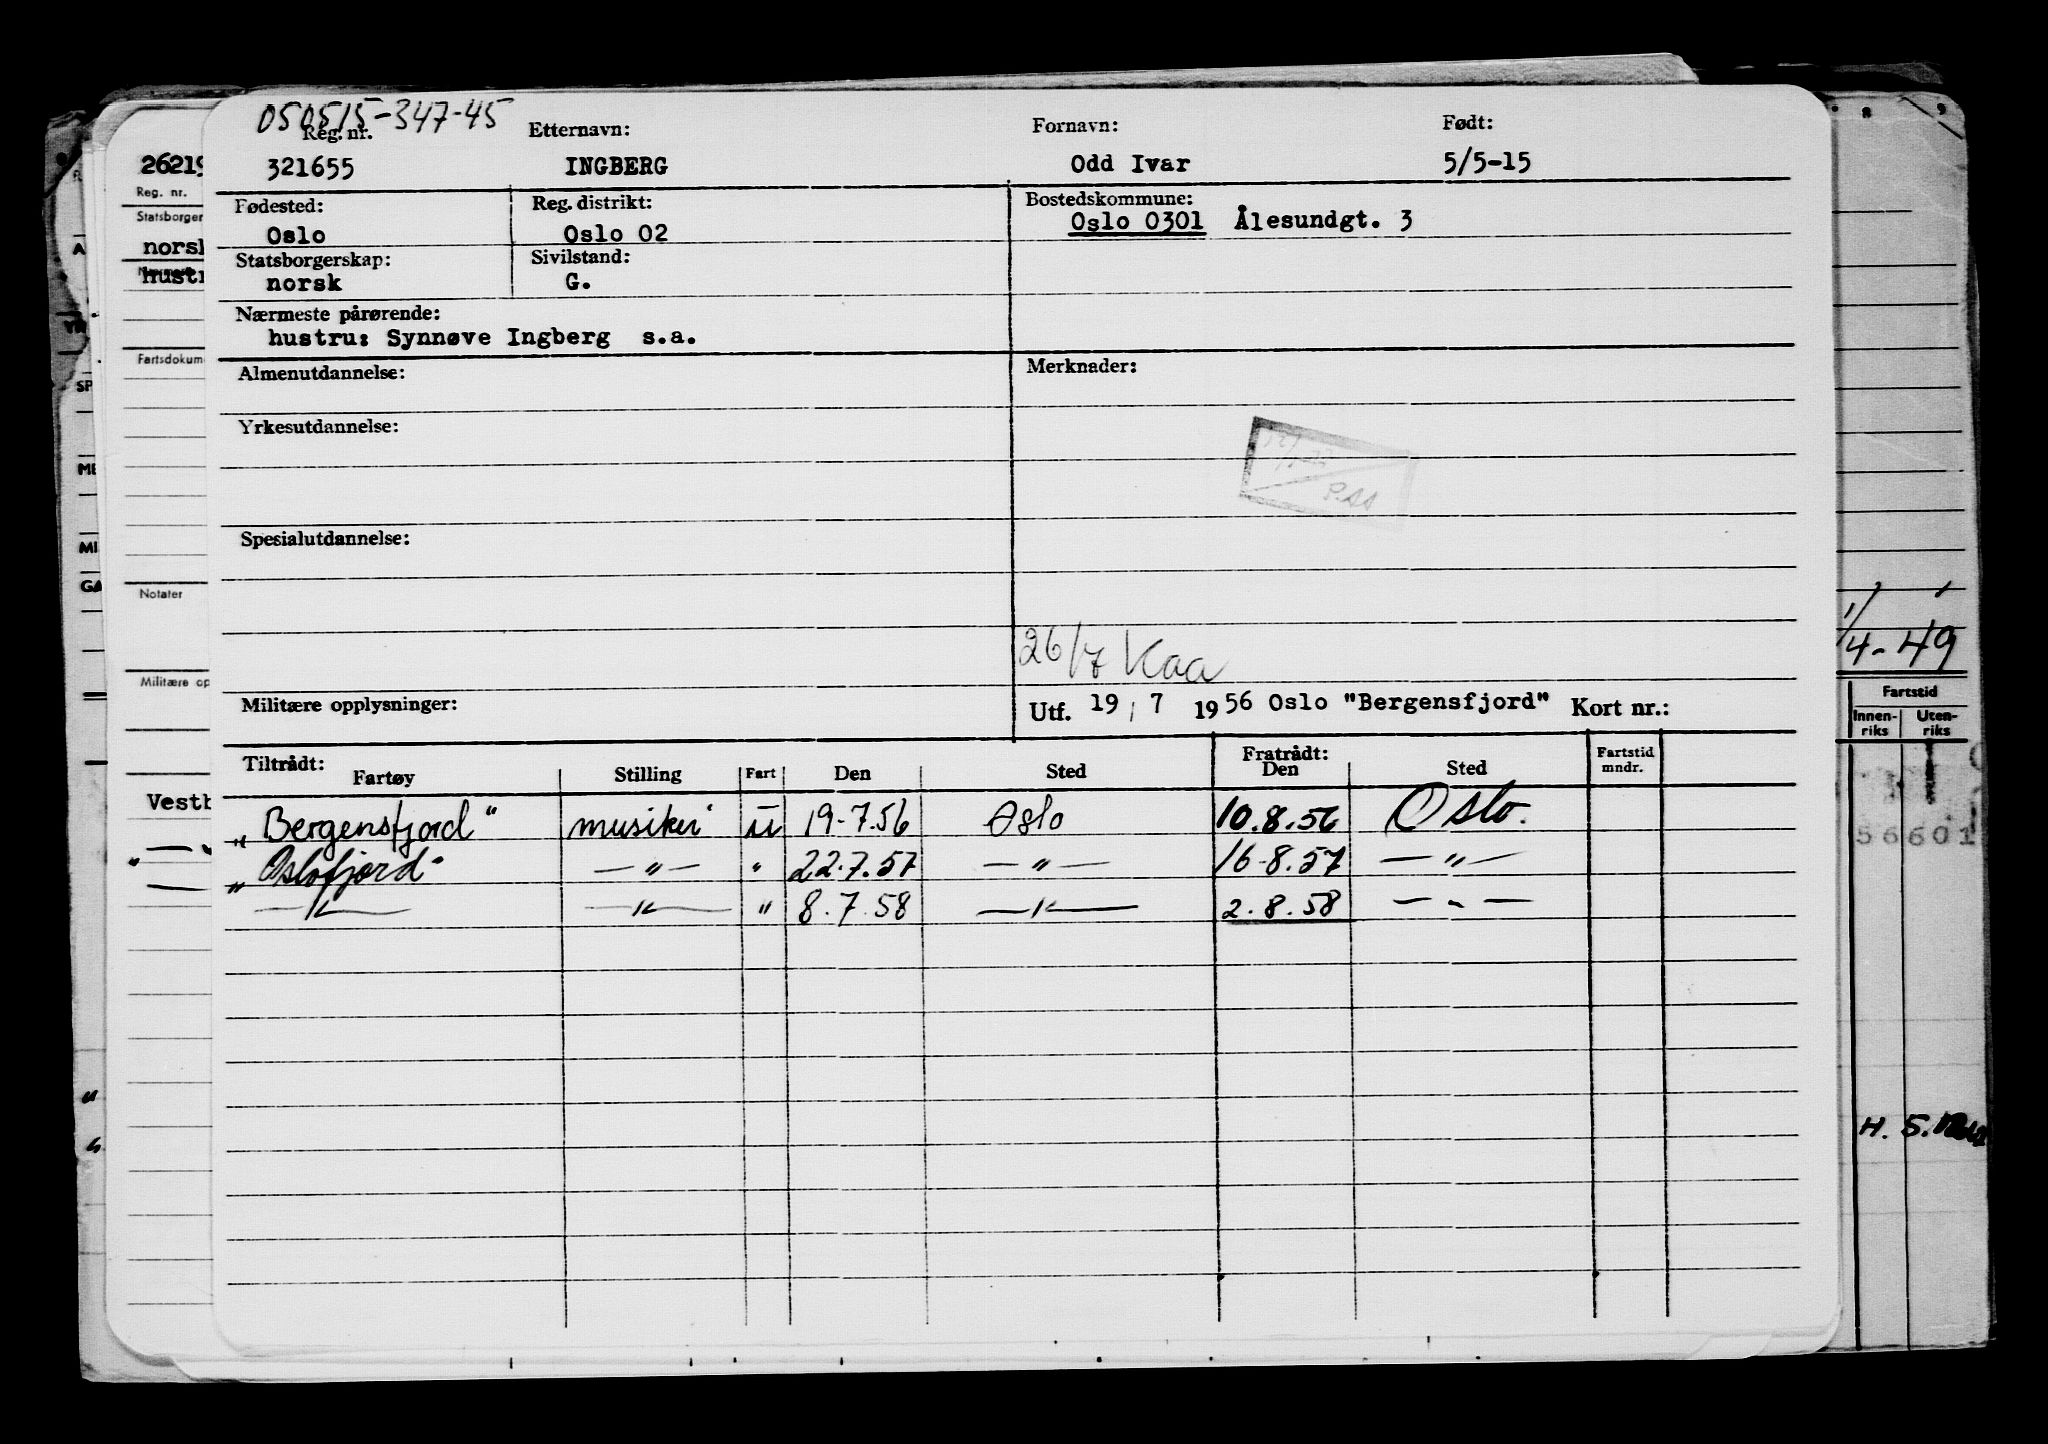 050515-347-45
Reg. nr. Etternavn: Fornavn: Født:
321655 INGBERG Odd Ivar 5/5-15
Fødested: Reg. distrikt: Bostedskommune:
Oslo Oslo 02 Oslo 0301 Ålesundgt. 3
Statsborgerskap: Sivilstand:
norsk G.
Nærmeste pårørende:
hustru: Synnøve Ingberg s.a.
Almenutdannelse: Merknader:
Yrkesutdannelse:
P.ss
Spesialutdannelse:
26/7 Kaa
Militære opplysninger: Utf. 19/7 1956 Oslo "Bergensfjord" Kort nr.:
Tiltrådt: Fratrådt: Fartstid mndr.
Fartøy Stilling Fart Den Sted Den Sted
"Bergensfjord" musiker u 19-7.56 Oslo 10.8.56 Oslo.
"Oslofjord" —"— " 22.7.57 —"— 16-8.57 —"—
—"— —"— " 8.7.58 —"— 2.8.58 —"—
26219
Reg. nr.
Statsborger
norsk
hustr
Fartsdokum
Notater
Militære op
Vestb
A
SP
ME
MI
GA
8 9
1/4-49
Fartstid
Innen-riks Uten-riks
56601
H. 5.